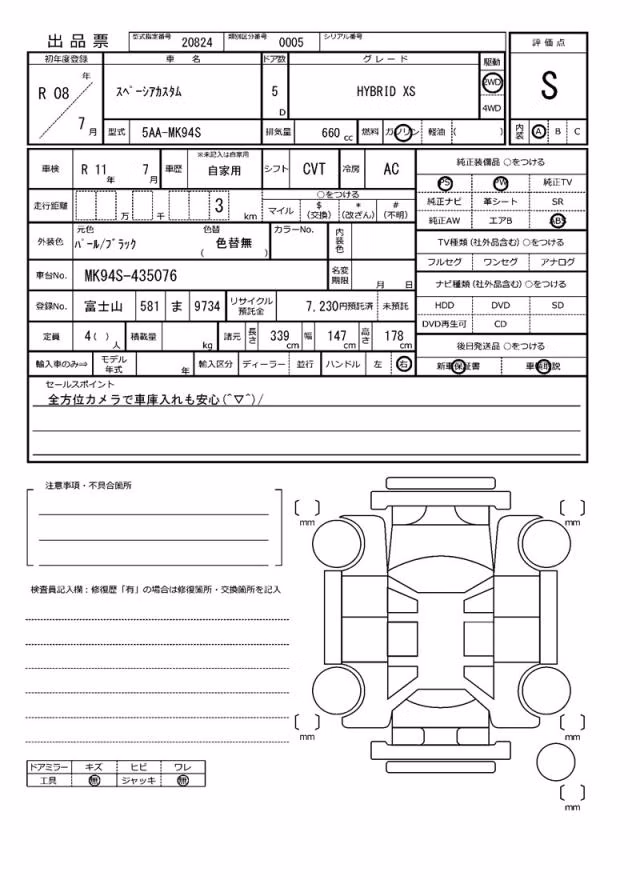 出品票 型式指定番号 20824 類別区分番号 0005 シリアル番号
評価点
初年度登録 車名 ドア数 グレード 駆動
R 08 年 7 月 スペーシアカスタム 5 D HYBRID XS 2WD 4WD S
型式 5AA-MK94S 排気量 660 cc 燃料 ガソリン 軽油 ( ) 内装 A B C
車検 R 11 年 7 月 車歴 ※未記入は自家用 自家用 シフト CVT 冷房 AC 純正装備品 ○をつける
PS PW 純正TV
走行距離 万 千 3 km ○をつける
マイル $(交換) *(改ざん) #(不明)
純正ナビ 革シート SR
純正AW エアB ABS
外装色 元色 パール/ブラック 色替 ( 色替無 ) カラーNo. 内装色 TV種類 (社外品含む) ○をつける
フルセグ ワンセグ アナログ
車台No. MK94S-435076 名変期限 月 日 ナビ種類 (社外品含む) ○をつける
登録No. 富士山 581 ま 9734 リサイクル預託金 7,230円預託済 未預託 HDD DVD SD
DVD再生可 CD
定員 4( ) 人 積載量 kg 諸元 長さ 339 cm 幅 147 cm 高さ 178 cm 後日発送品 ○をつける
輸入車のみ⇒ モデル年式 年 輸入区分 ディーラー 並行 ハンドル 左 右 新車保証書 車輌取説
セールスポイント
全方位カメラで車庫入れも安心(^▽^)/
注意事項・不具合箇所
mm mm
検査員記入欄：修復歴「有」の場合は修復箇所・交換箇所を記入
mm mm
ドアミラー キズ ヒビ ワレ
工具 無 ジャッキ 無
mm